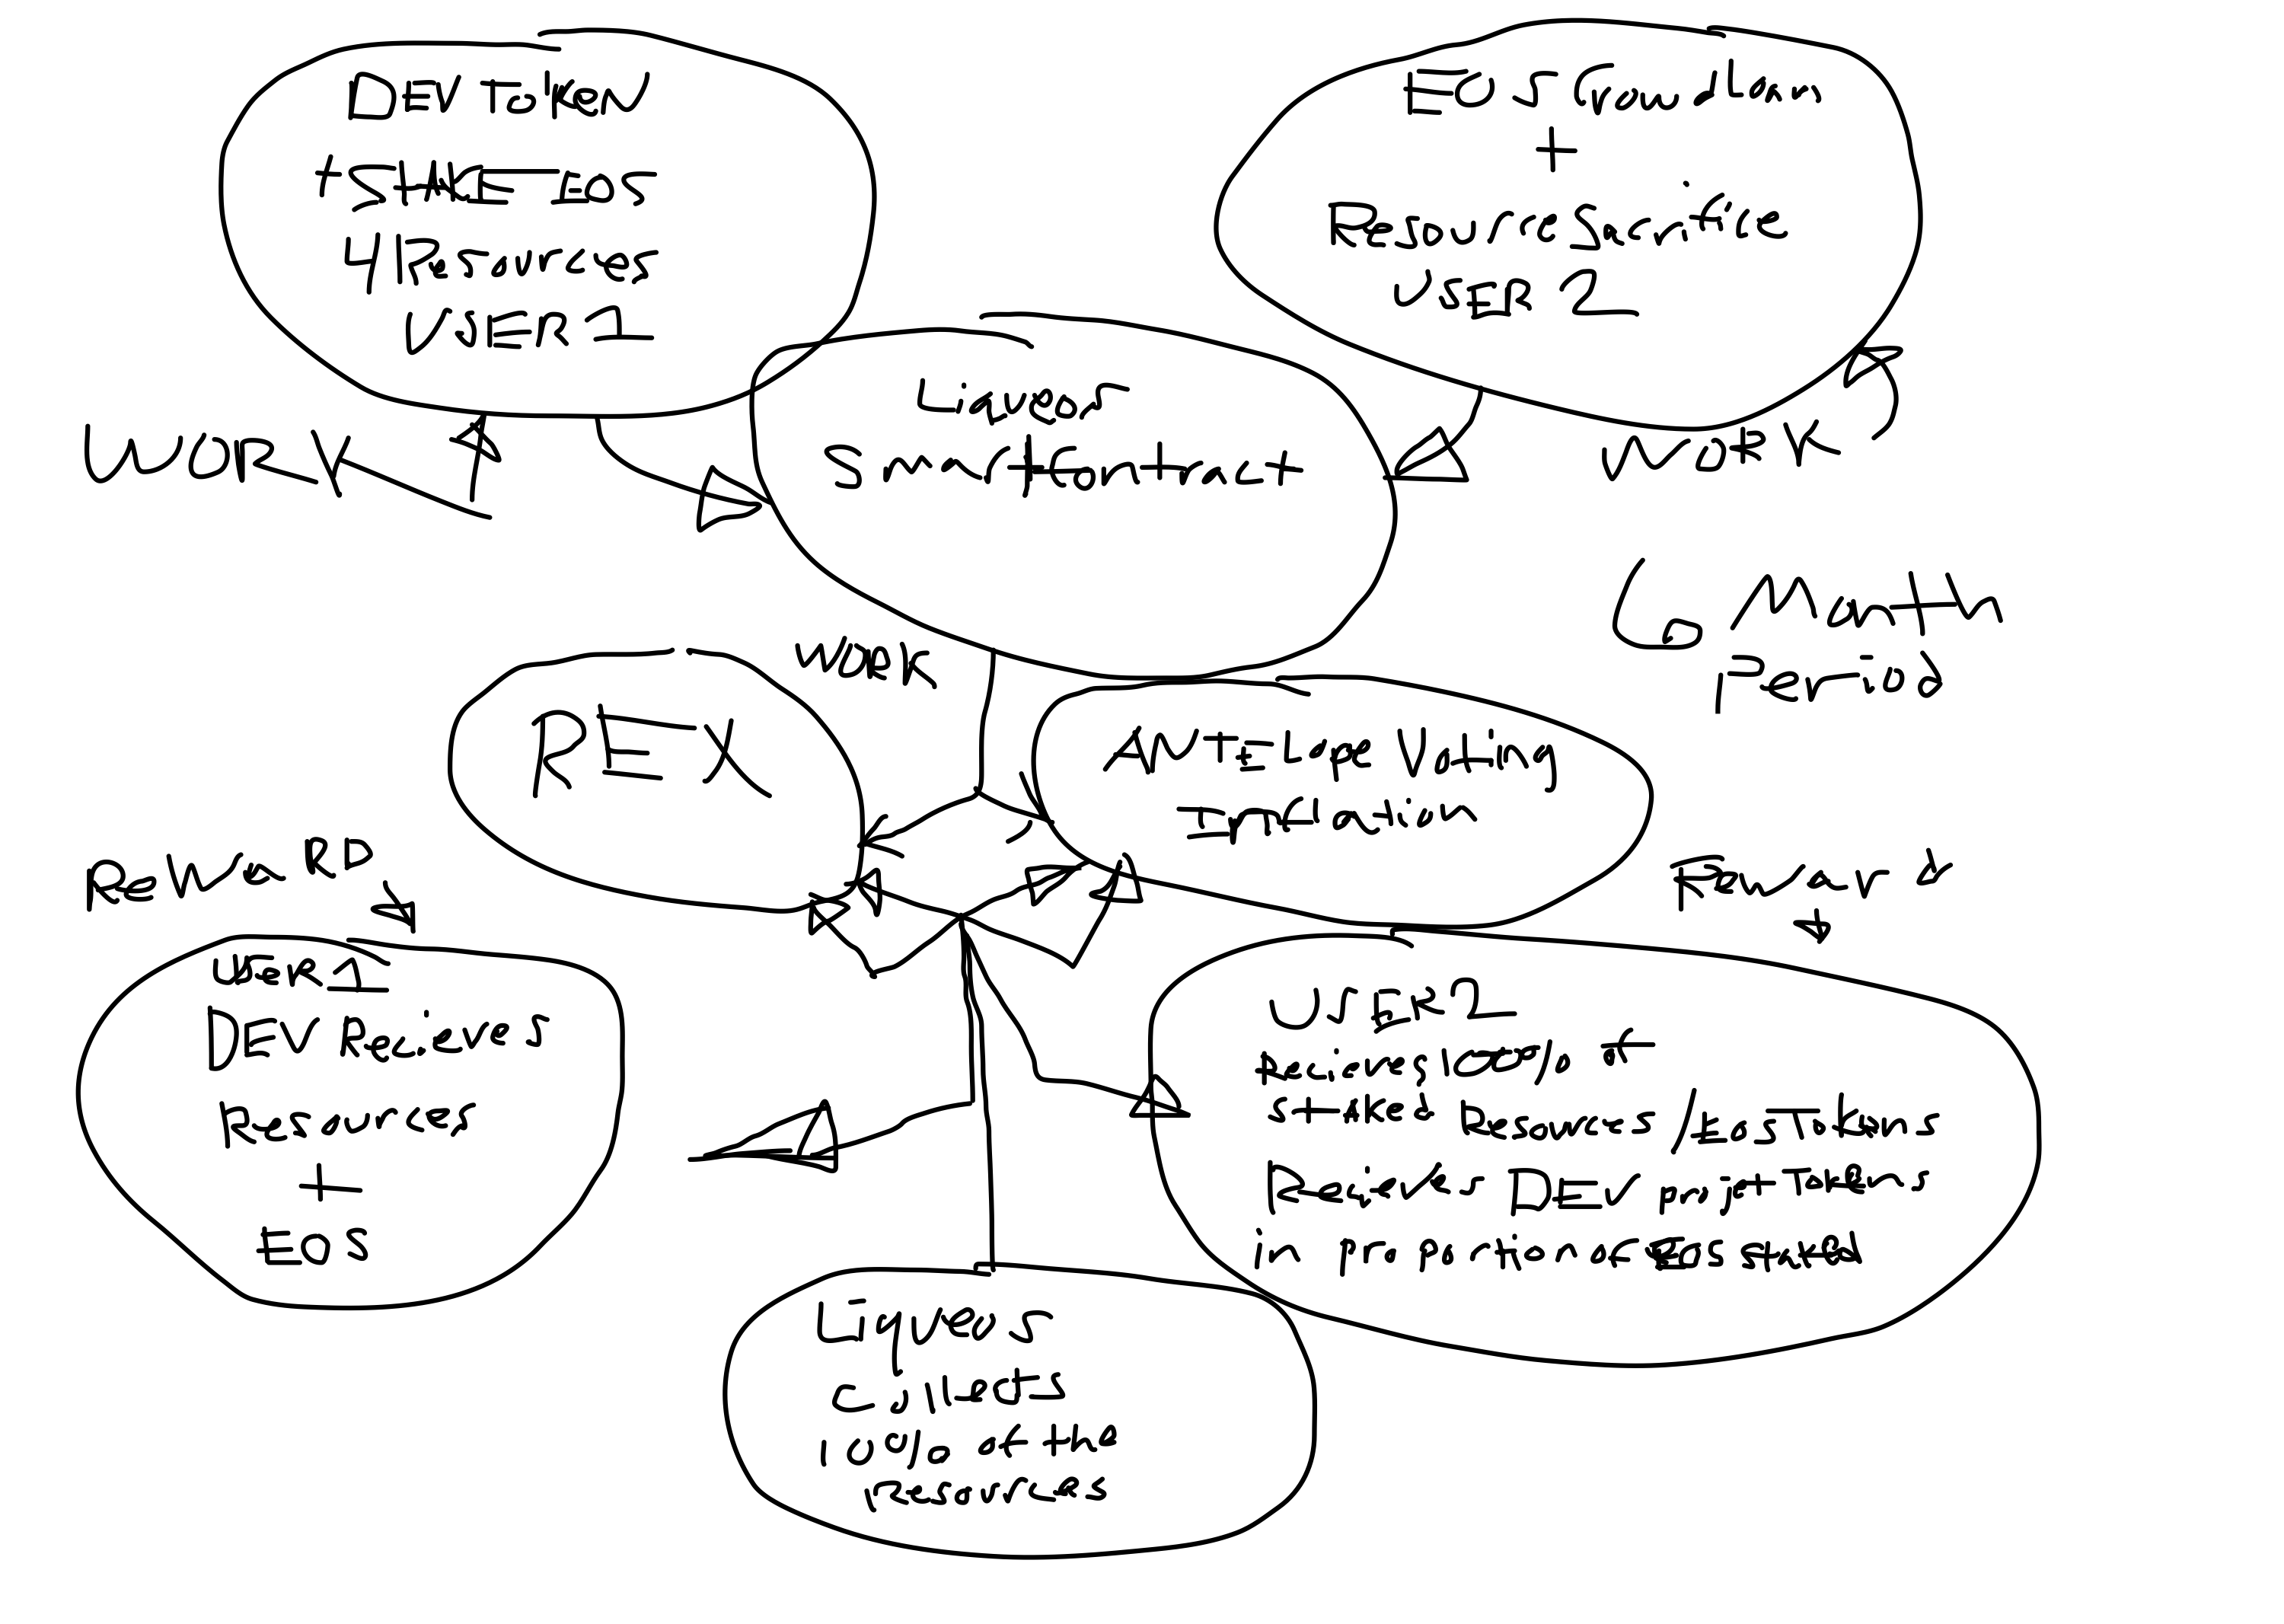 DEV ToKeN
+ STAKE EOS
4 Resources
USER 1
EOS Crowd Loans
+
Resource Sacrifice
USER 2
WORK
Liqueos
Smart Contract
WORK
6 Month
Period
WORK
REX
ANTELope Voting
Inflation
ReWaRD
Reward
UseR 1
DEV Recieves
Resources
+
EOS
USER 2
Recieves 100% of
staked Resources / Eos Tokens
Recieves DEV projet Tokens
in proportion of Eos staked
Liqueos
Collects
10% of the
Resources